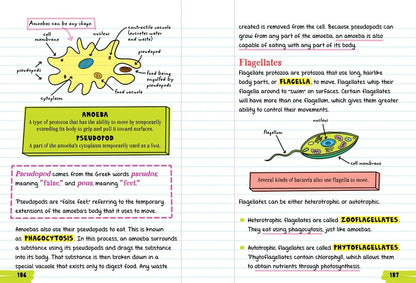 Amoebas can be any shape.
cell
membrane
nucleus
contractile vacuole
(excretes water
and waste)
pseudopod
pseudopods
food being
engulfed by
pseudopod
food vacuole
cytoplasm
AMOEBA
A type of protozoa that has the ability to move by temporarily
extending its body to grip and pull it toward surfaces.
PSEUDOPOD
A part of the amoeba's cytoplasm temporarily used as a foot.
Pseudopod comes from the Greek words pseudos,
meaning "false," and pous, meaning "feet."
Pseudopods are "false feet" referring to the temporary
extensions of the amoeba's body that it uses to move.
Amoebas also use their pseudopods to eat. This is known
as PHAGOCYTOSIS. In this process, an amoeba surrounds
a substance using its pseudopods and drags the substance
into its body. That substance is then broken down in a
special vacuole that exists only to digest food. Any waste
186
created is removed from the cell. Because pseudopods can
grow from any part of the amoeba, an amoeba is also
capable of eating with any part of its body.
Flagellates
Flagellate protozoa are protozoa that use long, hairlike
body parts, or FLAGELLA, to move. Flagellates whip their
flagella around to "swim" on surfaces. Certain flagellates
will have more than one flagellum, which gives them greater
ability to control their movements.
nucleus
flagellum
cell membrane
Several kinds of bacteria also use flagella to move.
Flagellates can be either heterotrophic or autotrophic.
Heterotrophic flagellates are called ZOOFLAGELLATES.
They eat using phagocytosis, just like amoebas.
Autotrophic flagellates are called PHYTOFLAGELLATES.
Phytoflagellates contain chlorophyll, which allows them
to obtain nutrients through photosynthesis.
187